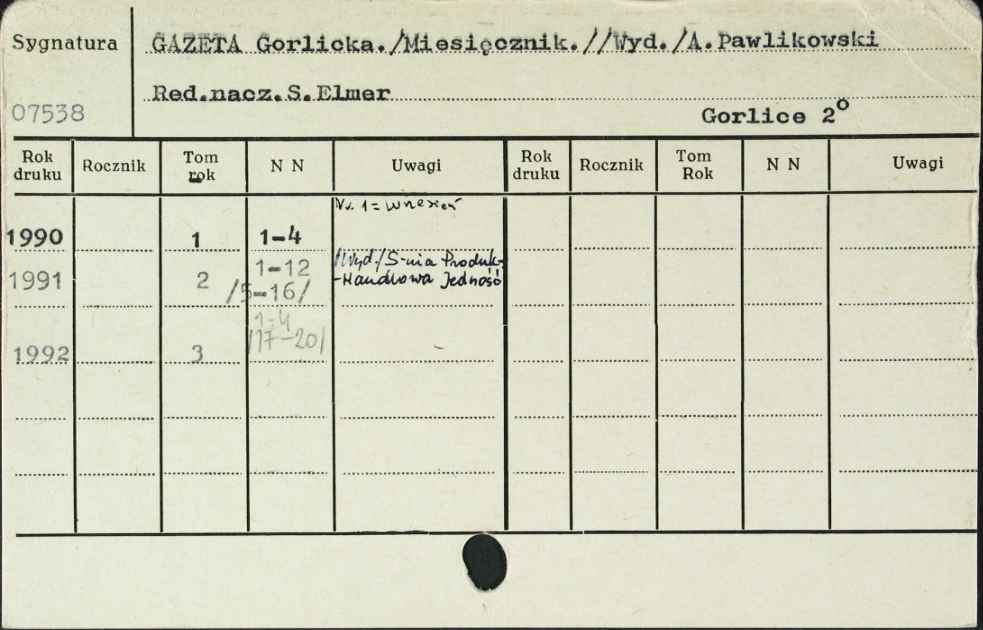 Sygnatura GAZETA Gorlicka./Miesięcznik.//Wyd./A.Pawlikowski
Red.nacz.S.Elmer
07538 Gorlice 2°
Rok druku Rocznik Tom rok N N Uwagi Rok druku Rocznik Tom Rok N N Uwagi
Nr. 1 = wrzesień
1990 1 1-4
1991 2 1-12 /Wyd./S-nia Produk-
/5-16/ -Handlowa Jedność
1-4
1992 3 /17-20/